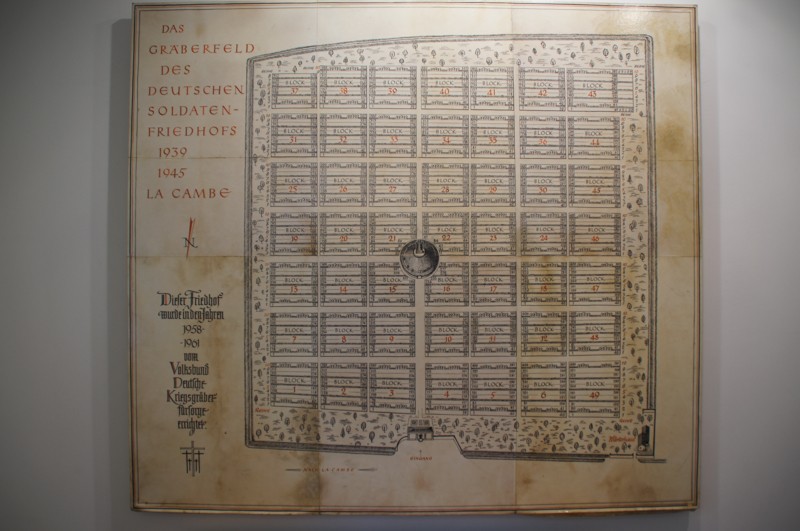 DAS
GRÄBERFELD
DES
DEUTSCHEN
SOLDATEN-
FRIEDHOFS
1939
1945
LA CAMBE
N
Dieser Friedhof
wurde in den Jahren
1958
-1961
vom
Volksbund
Deutsche
Kriegsgräber
fürsorge
errichtet
BLOCK BLOCK BLOCK BLOCK BLOCK BLOCK BLOCK
37 38 39 40 41 42 43
BLOCK BLOCK BLOCK BLOCK BLOCK BLOCK BLOCK
31 32 33 34 35 36 44
BLOCK BLOCK BLOCK BLOCK BLOCK BLOCK BLOCK
25 26 27 28 29 30 45
BLOCK BLOCK BLOCK BLOCK BLOCK BLOCK BLOCK
19 20 21 22 23 24 46
BLOCK BLOCK BLOCK BLOCK BLOCK BLOCK BLOCK
13 14 15 16 17 18 47
BLOCK BLOCK BLOCK BLOCK BLOCK BLOCK BLOCK
7 8 9 10 11 12 48
BLOCK BLOCK BLOCK BLOCK BLOCK BLOCK BLOCK
1 2 3 4 5 6 49
LA CAMBE